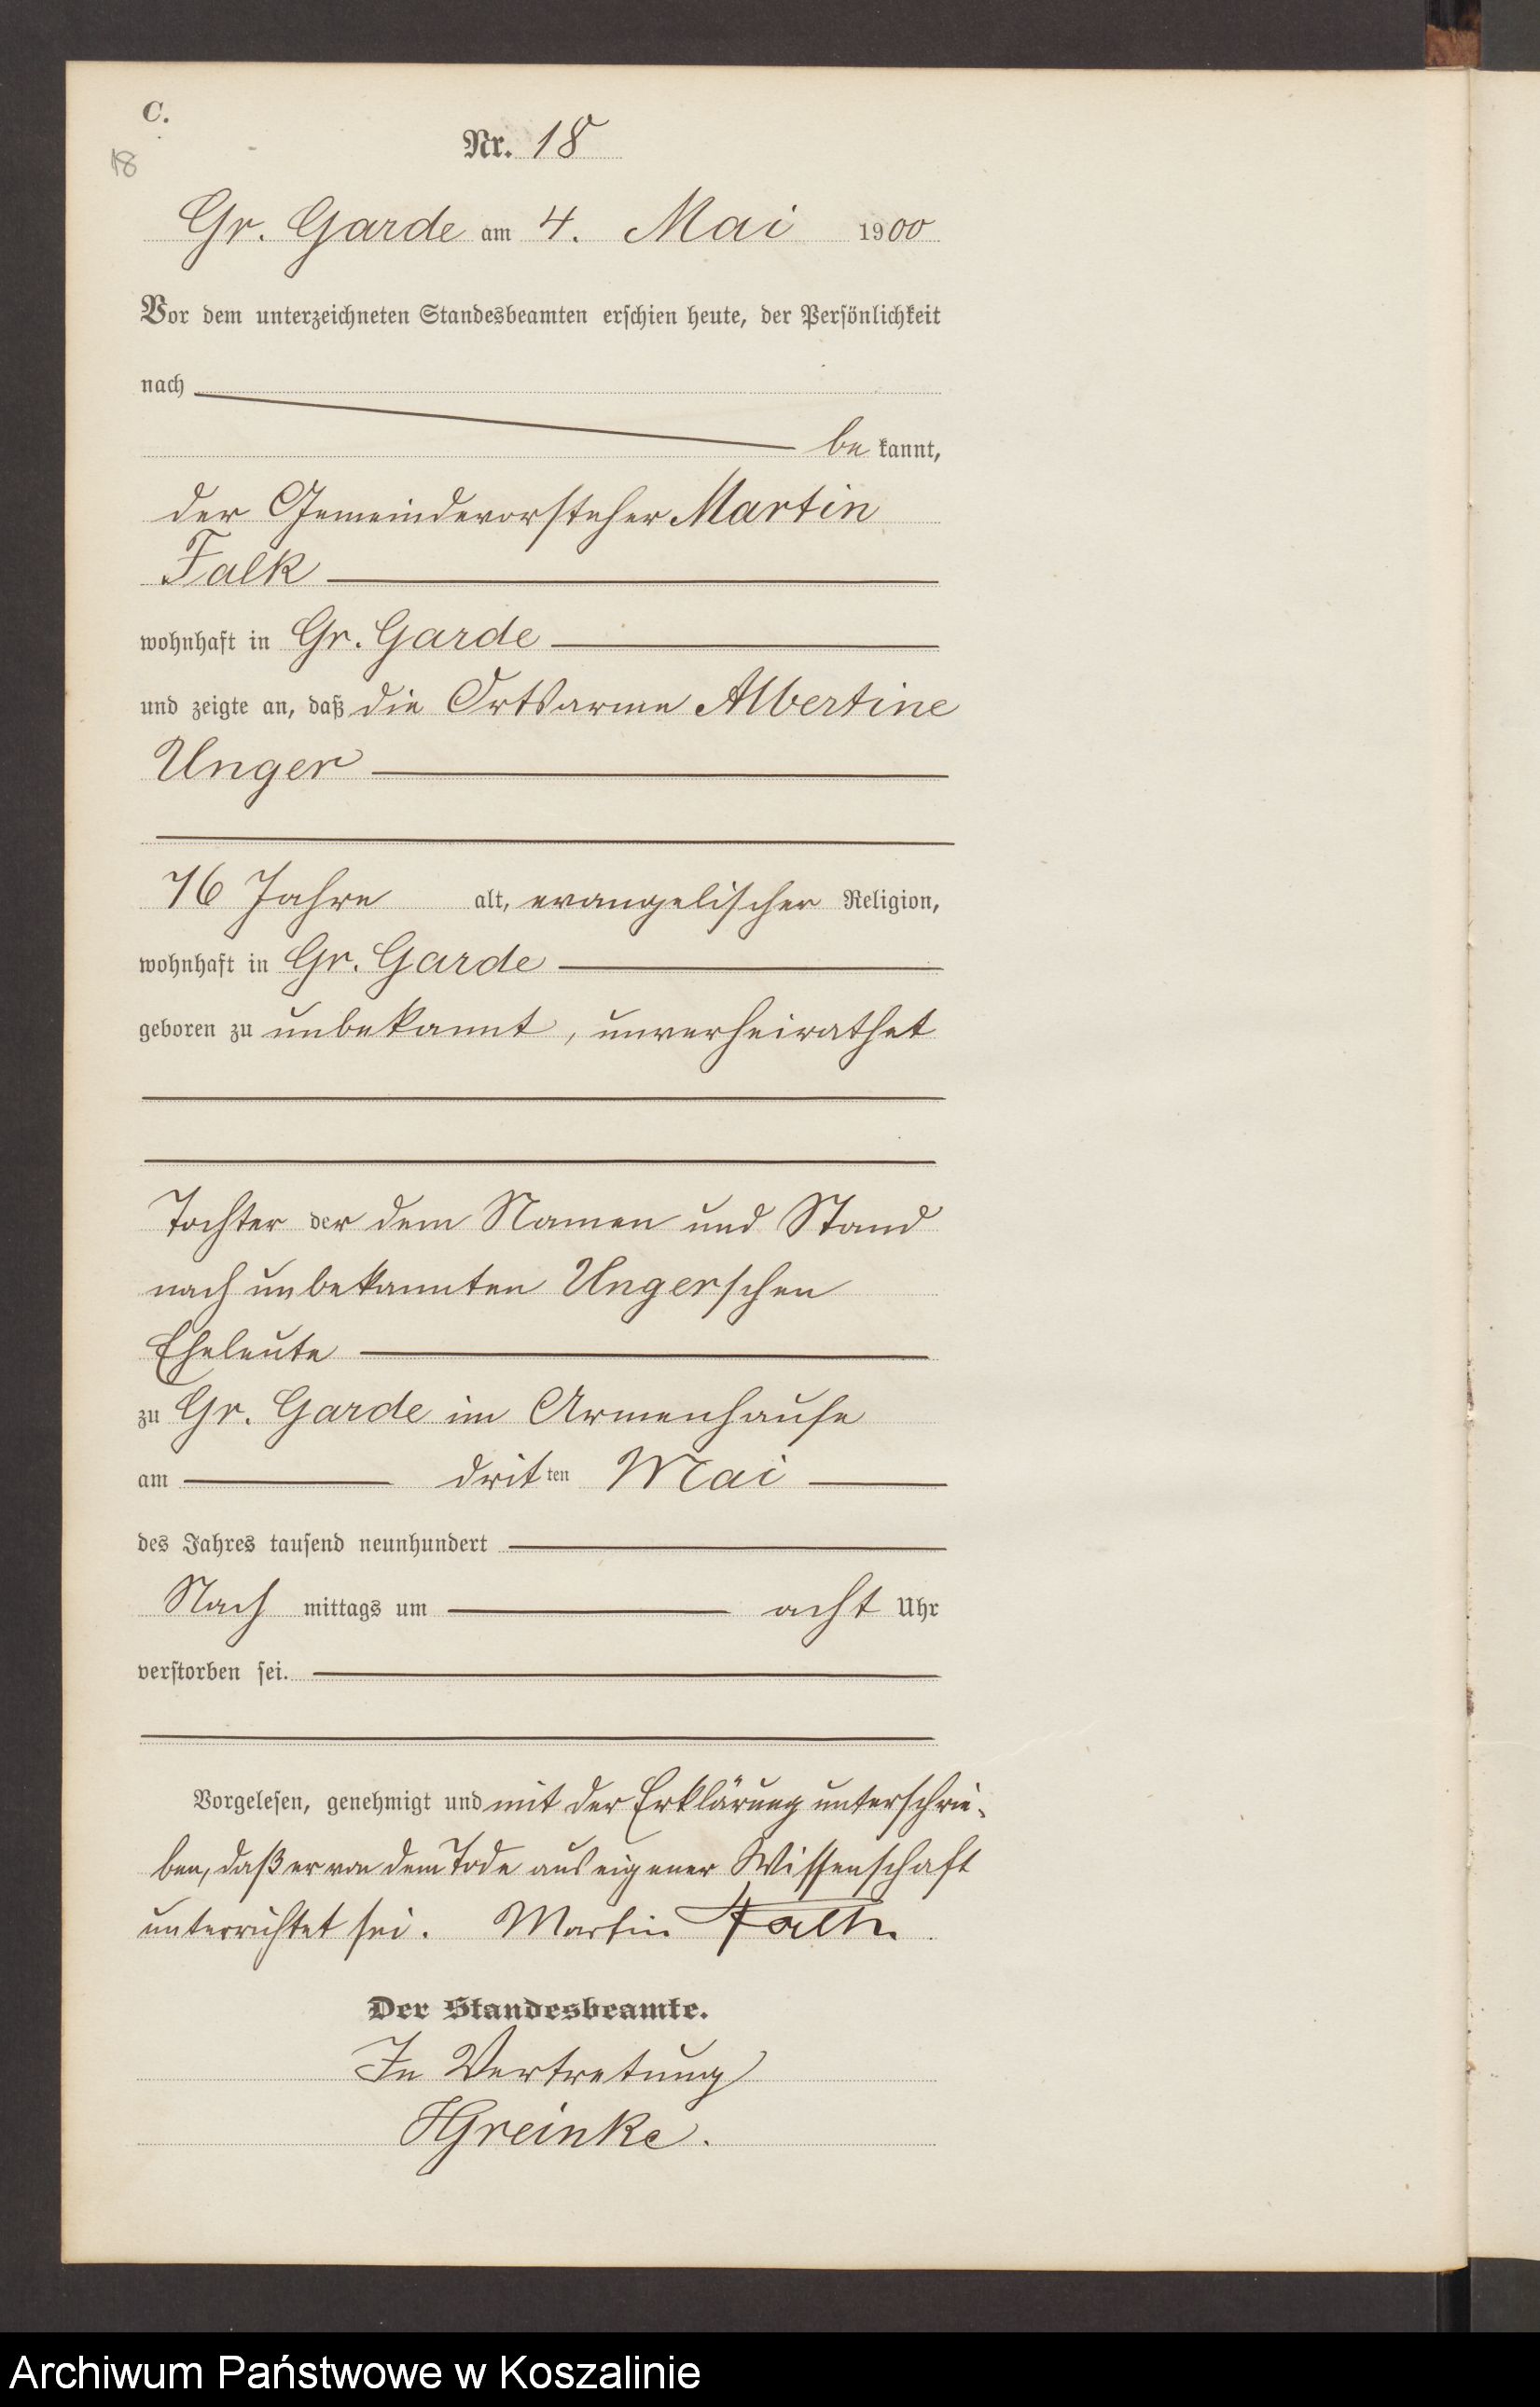 C.
Nr. 18
18
Gr. Garde am 4. Mai 1900
Vor dem unterzeichneten Standesbeamten erschien heute, der Persönlichkeit
nach
be kannt,
der Gemeindevorsteher Martin
Falk
wohnhaft in Gr. Garde
und zeigte an, daß die Ortsarme Albertine
Unger
76 Jahre alt, evangelischer Religion,
wohnhaft in Gr. Garde
geboren zu unbekannt, unverheirathet
Tochter der dem Namen und Stand
nach unbekannten Ungerschen
Eheleute
zu Gr. Garde im Armenhause
am dritten Mai
des Jahres tausend neunhundert
Nach mittags um acht Uhr
verstorben sei.
Vorgelesen, genehmigt und mit der Erklärung unterschrie-
ben, daß er von dem Tode aus eigener Wissenschaft
unterrichtet sei. Martin Falk.
Der Standesbeamte.
In Vertretung
HGreinke.
Archiwum Państwowe w Koszalinie